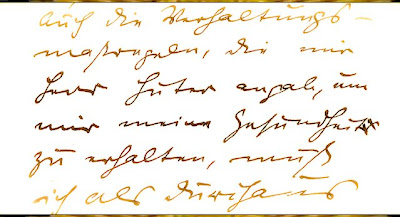 auch die Verhaltungs-
maßregeln, die mir
Herr Huter angab, um
mir meine Gesundheit
zu erhalten, muß
ich als durchaus